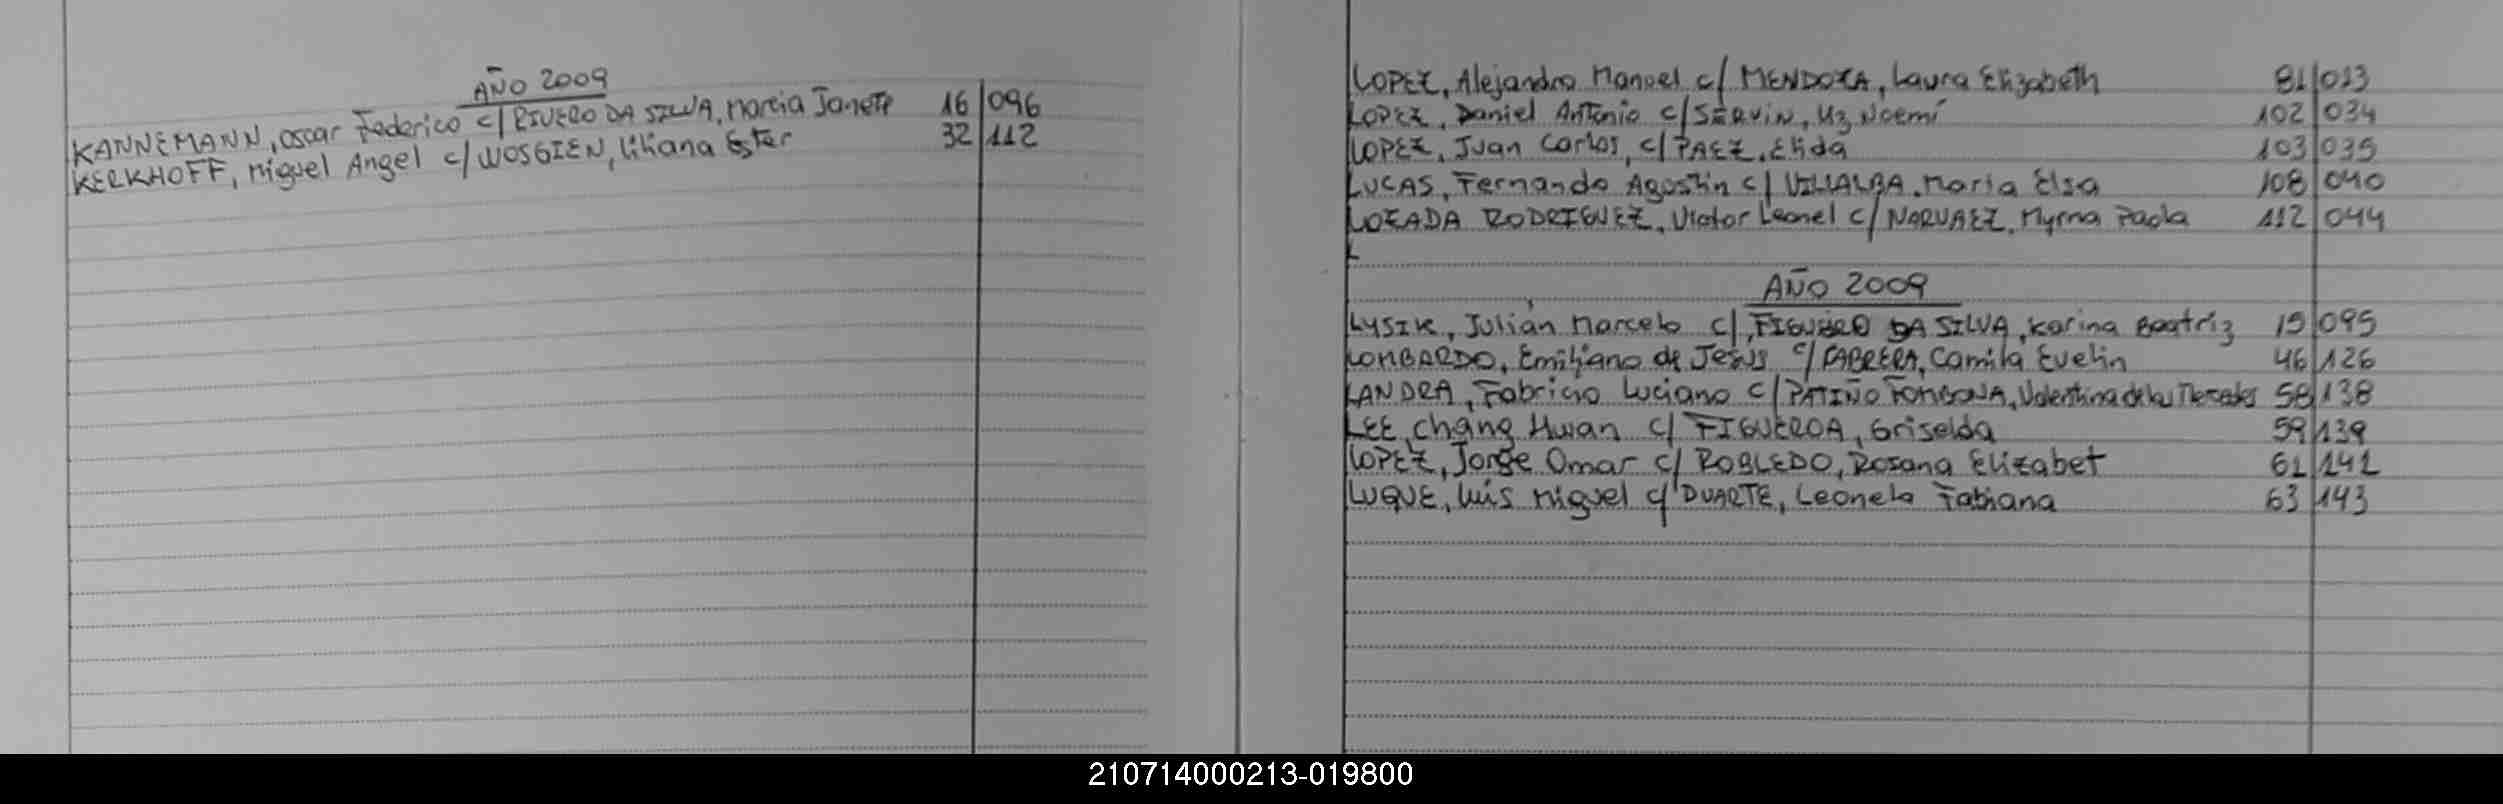 AÑO 2009
KANNEMANN, Oscar Federico c/ RIVERO DA SILVA, Marcia Janete 16 096
KERKHOFF, Miguel Angel c/ WOSGIEN, Liliana Ester 32 112
LOPEZ, Alejandro Manuel c/ MENDOZA, Laura Elizabeth 81 013
LOPEZ, Daniel Antonio c/ SERVIN, Luz Noemí 102 034
LOPEZ, Juan Carlos, c/ PAEZ, Elida 103 035
LUCAS, Fernando Agostin c/ VILLALBA, Maria Elsa 108 040
LOZADA RODRIGUEZ, Victor Leonel c/ NARVAEZ, Myrna Paola 112 044
L
AÑO 2009
LYSIK, Julián Marcelo c/ DA SILVA, Karina Beatriz 15 095
LOMBARDO, Emiliano de Jesús c/ CABRERA, Camila Evelin 46 126
LANDRA, Fabricio Luciano c/ PATIÑO FOMBONA, Valentina de las Mercedes 58 138
LEE, Chang Hwan c/ FIGUEROA, Griselda 59 139
LOPEZ, Jorge Omar c/ ROBLEDO, Rosana Elizabet 61 141
LUQUE, Luis Miguel c/ DUARTE, Leonela Fabiana 63 143
210714000213-019800